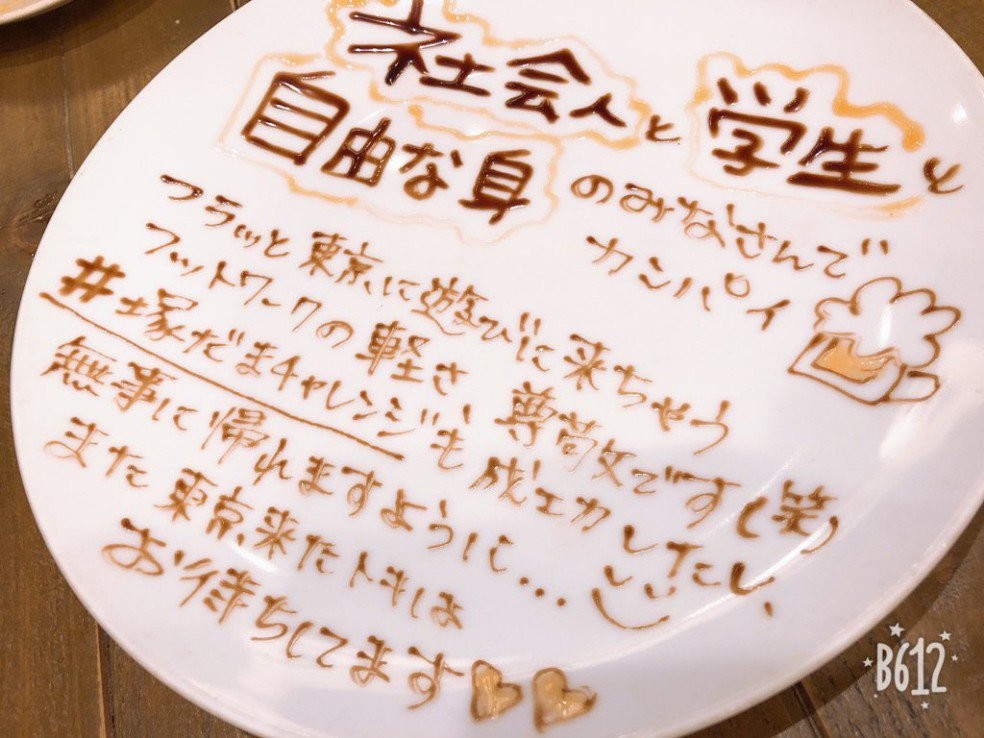 社会人と学生と
自由な身のみなさんで
カンパイ
フラッと東京に遊びに来ちゃう
フットワークの軽さ、尊敬です(笑)
#土塚だまチャレンジも成功したし、
無事に帰れますように…
また東京来たトキは
お待ちしてます
B612